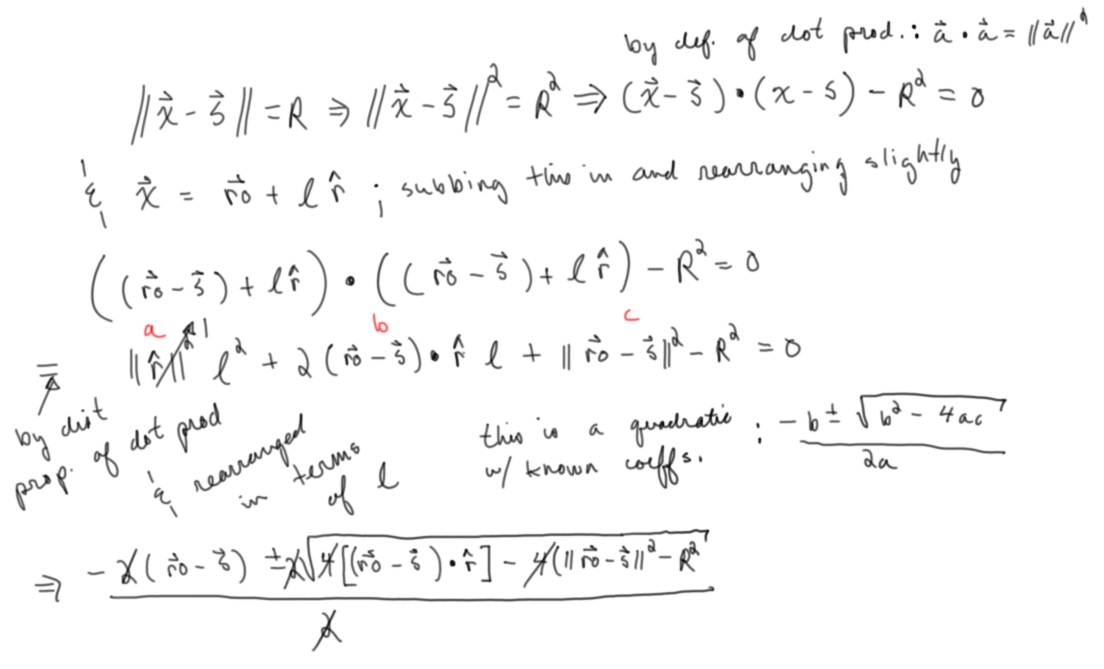 by def. of dot prod.: \vec{a} \cdot \vec{a} = \|\vec{a}\|^2
\|\vec{x} - \vec{s}\| = R \Rightarrow \|\vec{x} - \vec{s}\|^2 = R^2 \Rightarrow (\vec{x} - \vec{s}) \cdot (x - s) - R^2 = 0
& \vec{x} = \vec{ro} + l \hat{r} ; subbing this in and rearranging slightly
((\vec{ro} - \vec{s}) + l\hat{r}) \cdot ((\vec{ro} - \vec{s}) + l\hat{r}) - R^2 = 0
a b c
= \|\hat{r}\|^2 1 l^2 + 2(\vec{ro} - \vec{s}) \cdot \hat{r} l + \|\vec{ro} - \vec{s}\|^2 - R^2 = 0
by dist
prop. of dot prod
& rearranged
in terms
of l
this is a quadratic
w/ known coeffs.
: \frac{-b \pm \sqrt{b^2 - 4ac}}{2a}
\Rightarrow \frac{-2(\vec{ro} - \vec{s}) \pm 2\sqrt{4[(\vec{ro} - \vec{s}) \cdot \hat{r}] - 4(\|\vec{ro} - \vec{s}\|^2 - R^2}}{2}